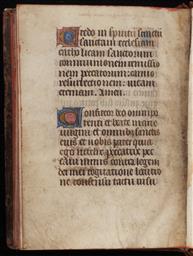 Credo in spiritu sancti
sanctam ecclesiam
catholicam sanctorum
communionem remissio
nem peccatorum carnis
resurrectionem vitam
eternam Amen
Confiteor deo omnipo
tenti et beate marie
virgini et omnibus sanctis
eius et vobis pater quia
ego peccavi
contra legem
dei mei cogitatione locutio
ne consensu tactu visu